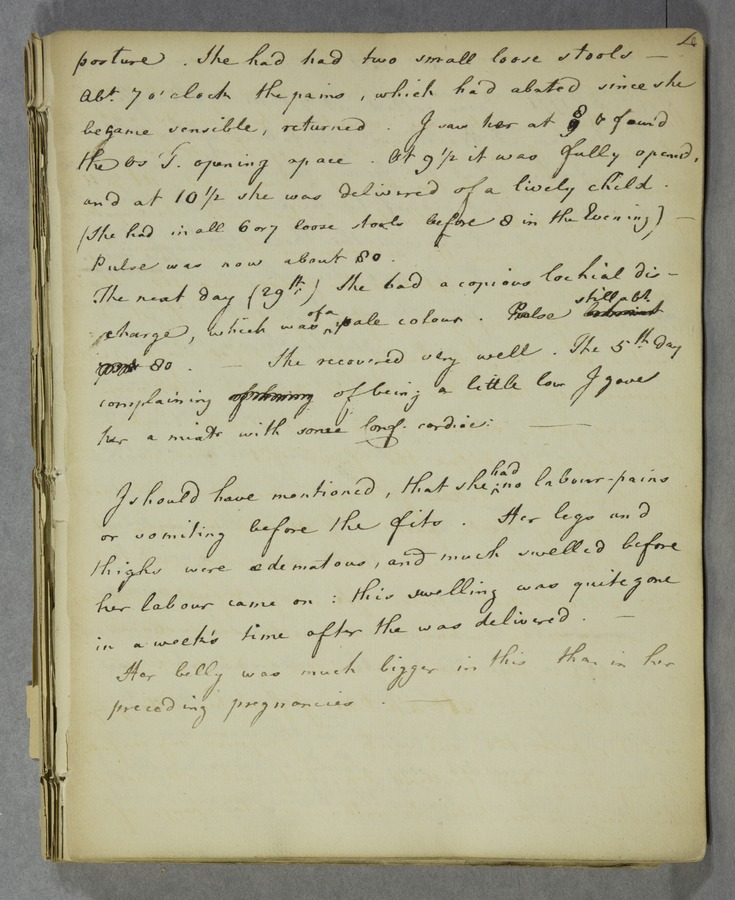 4
posture. She had had two small loose stools —
Abt. 7 o'clock the pains, which had abated since she
became sensible, returned. I saw her at 8 & found
the os T. opening apace. At 9 1/2 it was fully opened,
and at 10 1/2 she was delivered of a lively child.
(She had in all 6 or 7 loose stools before 8 in the Evening) —
Pulse was now about 80.
The next day (29th.) She had a copious lochial dis-
charge, which was of a pale colour. Pulse still abt.
80. — She recovered very well. The 5th day
complaining of being a little low I gave
her a mixtr with some conf. cardiac: —
I should have mentioned, that she had no labour-pains
or vomiting before the fits. Her legs and
thighs were œdematous, and much swelled before
her labour came on: this swelling was quite gone
in a week's time after the was delivered. —
Her belly was much bigger in this than in her
preceding pregnancies. —